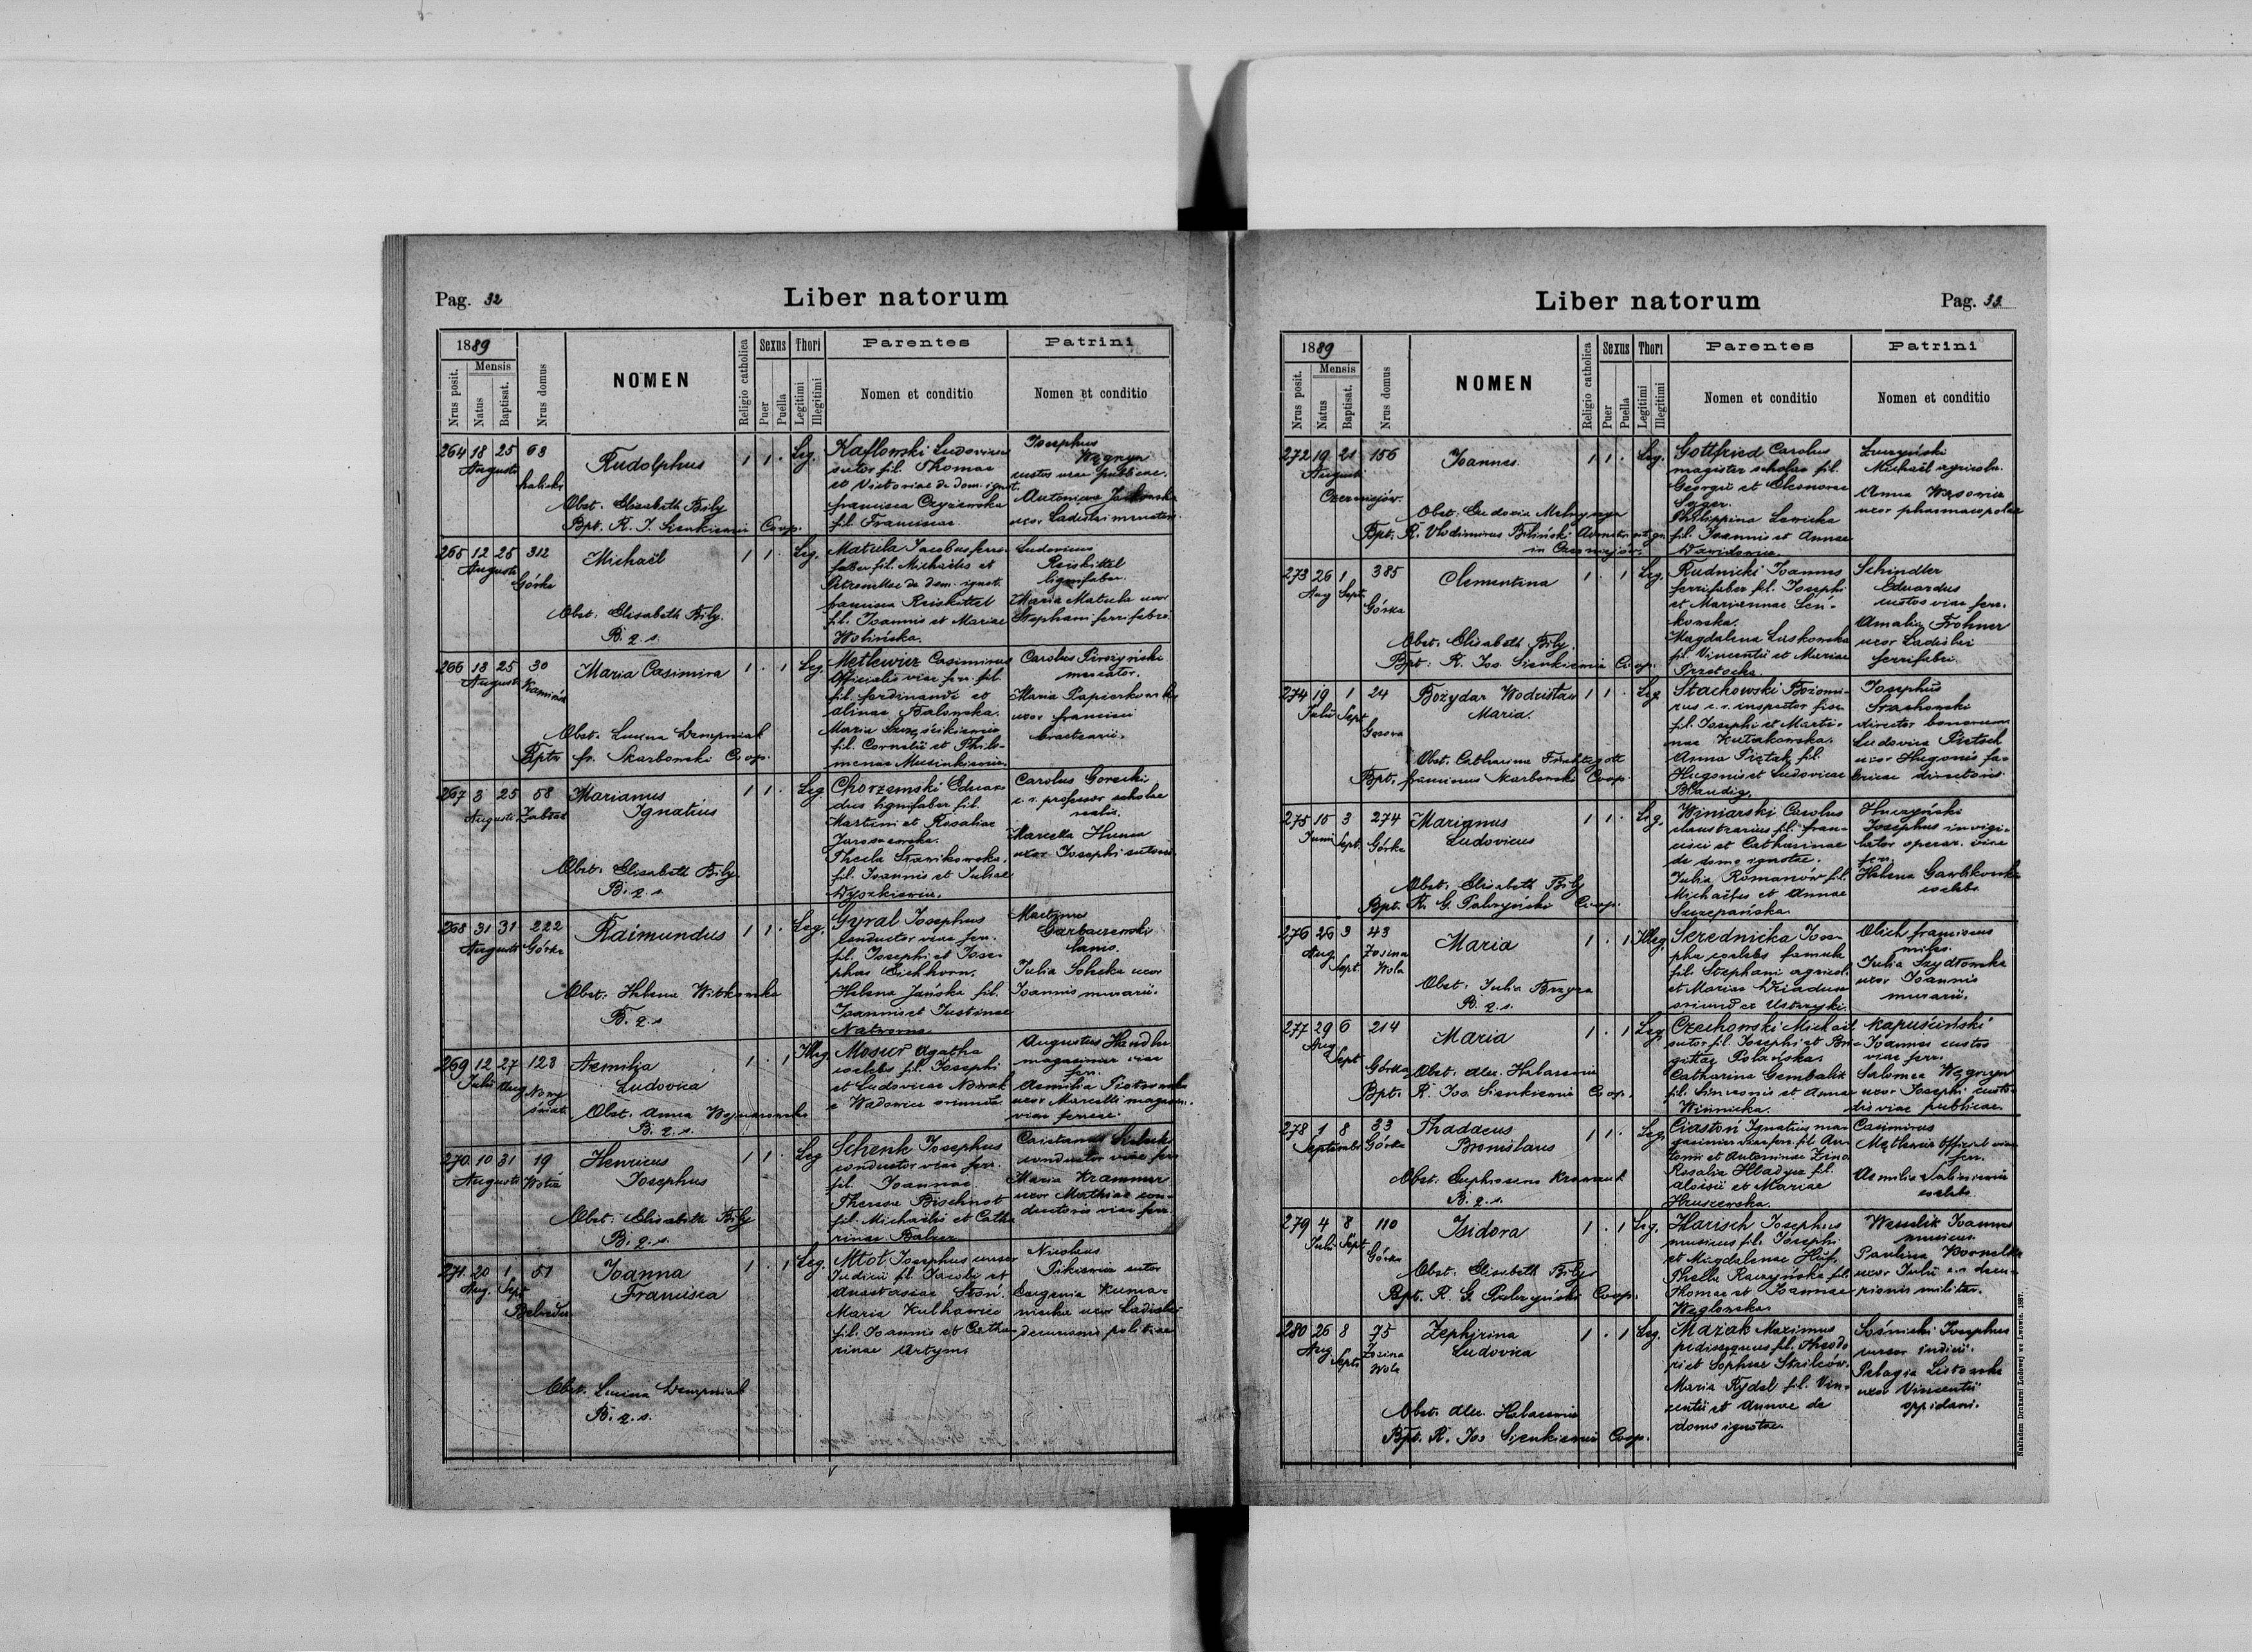 Pag. 32
Liber natorum
1889
Mensis
Nrus posit.
Natus
Baptisat.
Nrus domus
NOMEN
Religio catholica
Sexus
Puer
Puella
Thori
Legitimi
Illegitimi
Parentes
Nomen et conditio
Patrini
Nomen et conditio
264 18 25 68
Augusti
Rudolphus
1 1 . Leg.
Kaflowski Ludovicus
sutor fil. Thomae
et Victoriae de dom. ignot.
francisca Czyżewska
fil. Franciscae
Josephus
Węgrzyn
custos viae publicae.
Antonina
uxor Ladislai
Obst. Elisabeth Biły
Bpt. R. J. Sienkiewicz Coop.
265 12 25 312
Augusti
Górka
Michaël
1 1 . Leg.
Matula Jacobus ferri
faber fil. Michaëlis et
Petronellae de dom. ignot.
francisca Reiskittel
fil. Joannis et Mariae
Wolińska.
Ludovicus
Reiskittel
lignifaber.
Maria Matula uxor
Stephani ferrifabri
Obst. Elisabeth Biły.
B. q. s.
266 18 25 30
Augusti
Maria Casimira
1 . 1 Leg.
Metlewicz Casimirus
Officialis viae ferr. fil.
fil. ferdinandi et
Alinae Balowska.
Maria
fil. Cornelii et Philo-
menae
Carolus Pirożyński
mercator.
Maria
uxor francisci
Obst. Lucina Dempniak
Bptu fr. Skarbowski Coop.
267 3 25 58
Augusti
Marianus
Ignatius
1 1 . Leg
Chorzemski Eduar-
dus lignifaber fil.
Martini et Rosaliae
Jaroszewska.
Thecla
fil. Joannis et Juliae
Carolus Gorecki
c. r. professor scholae
realis.
Marcella
uxor Josephi sutoris.
Obst. Elisabeth Biły
B. q. s.
268 31 31 222
Augusti Górka
Raimundus
1 1 . Leg.
Gyral Josephus
Conductor viae ferr.
fil. Josephi et Jose-
phae Eichhorn.
Helena Jańska fil.
Joannis et Justinae
Martinus
Garbaczewski
lanio.
Julia uxor
Joannis murarii.
Obst. Helena Witkowska
B. q. s.
269 12 27 123
Julii Aug. Nowy
świat
Aemilia
Ludovica
1 . 1 Illeg
Mosur Agatha
coelebs fil. Josephi
et Ludovicae Nowak
e Wadowice oriunda.
Augustus Handler
magasinier viae
ferr.
Aemilia Piotrowska
uxor Marcelli magasin.
viae ferreae.
Obst. Anna
B. q. s.
270 10 31 19
Augusti
Henricus
Josephus
1 1 . Leg
Schenk Josephus
conductor viae ferr.
fil. Joannae.
Theresa Bischnot
fil. Michaëlis et Catha
rinae Balzer
conductor viae ferr
Maria Krammer
uxor Mathiae con-
ductoris viae ferr.
Obst. Elisabeth Biły
B. q. s.
271 20 1 51
Aug. Sept.
Belweder
Joanna
Francisca
1 . 1 Leg.
Mtot Josephus cursor
Judicii fil. Jacobi et
Anastasiae
Maria Kulhawiec
fil. Joannis et Catha-
rinae Artym.
Nicolaus
sutor
Eugenia
uxor Ladislai
decurionis politiae
Obst. Lucina Dempniak
B. q. s.
Liber natorum
Pag. 33
1889
Mensis
Nrus posit.
Natus
Baptisat.
Nrus domus
NOMEN
Religio catholica
Sexus
Puer
Puella
Thori
Legitimi
Illegitimi
Parentes
Nomen et conditio
Patrini
Nomen et conditio
272 19 21 156
Augusti
Joannes.
1 1 . Leg.
Gottfried Carolus
magister scholae fil.
Georgii et Eleonorae
Philippina Lewicka
fil. Joannis et Annae
Dawidowicz.
Michaël agricola.
Anna Wąsowicz
uxor pharmacopolae
Obst. Eudovia
Bpt. R. Vlodimirus Biliński Administr. rit. gr.
273 26 1 385
Aug Sept.
Górka
Clementina
1 . 1 Leg.
Rudnicki Joannes
ferrifaber fil. Josephi
et Mariannae Leń-
kowska.
Magdalena Luskowska
fil. Vincentii et Mariae
Przetocka.
Schindler
Eduardus
custos viae ferr.
Amalia Frohner
uxor Ladislai
ferrifabri.
Obst. Elisabeth Biły.
Bpt: R. Jos. Sienkiewicz Coop.
274 19 1 24
Julii Sept
Bożydar
Maria.
1 1 . Leg
Stachowski Bożomi-
rus c. r. inspector fisc.
fil. Josephi et Marti-
nae Kutrakowska.
Anna fil.
Hugonis et Ludovicae
Josephus
director bonorum
Ludovica Pietsch
uxor Hugonis fa-
bricae directoris.
Obst. Catharina Fruchtgott
Bpt. franciscus Skarbowski Coop.
275 15 3 274
Junii Sept. Górka
Marianus
Ludovicus
1 1 . Leg.
Winiarski Carolus
claustrarius fil. fran-
cisci et Catharinae
de domo ignotae.
Julia Romanów fil.
Michaëlis et Annae
Szczepańska.
Huczyński
Josephus invigi-
lator operar. viae
ferr.
Helena Gawlikowska
coelebs.
Obst. Elisabeth Biły
Bpt. R. G. Pałczyński Coop.
276 26 3 43
Aug. Sept. Zosina
Wola
Maria
1 . 1 Illeg.
Serednicka Jose-
pha coelebs famula
fil. Stephani agricol.
et Mariae
oriund. ex Ustrzyki.
Olich franciscus
miles.
Julia Szydłowska
uxor Joannis
murarii.
Obst. Julia Brzyza
B. q. s.
277 29 6 214
Aug. Sept
Górka
Maria
1 . 1 Leg
Czechowski Michaël
sutor fil. Josephi et Bri-
gittae Polańska.
Catharina Gembalik
fil. Simeonis et Annae
Winnicka.
Kapuściński
Joannes custos
viae ferr.
Salomea Węgrzyn
uxor Josephi custo-
dis viae publicae.
Obst. Alex. Halacewicz
Bpt. R. Jos. Sienkiewicz Coop.
278 1 8 33
Septembr. Górka
Thadaeus
Bronislaus
1 1 . Leg.
Ciastoń Ignatius ma-
gasinier viae ferr. fil. An-
tonii et Antoninae
Rosalia Hładysz fil.
Aloisii et Mariae
Hruszewska.
Casimirus
Mętlewicz official. viae
ferr.
Aemilia
coelebs.
Obst. Euphrosina
B. q. s.
279 4 8 110
Julii Sept. Górka
Isidora
1 . 1 Leg.
Harisch Josephus
musicus fil. Josephi
et Magdalenae Huf.
Thecla Raczyńska fil.
Thomae et Joannae
Węglowska.
Joannes
musicus.
Paulina
uxor Julii c. r. decu-
rionis militar.
Obst. Elisabeth Biły
Bpt. R. G. Pałczyński Coop.
280 26 8 75
Aug. Septr. Zosina
Wola
Zephirina
Ludovica
1 . 1 Leg.
Mazak Maximus
pedissequus fil. Theodo
ri et Sophiae Strilców.
Maria Rydel fil. Vin-
centii et Annae de
domo ignotae.
Sośnicki Josephus
cursor indicii.
Pelagia Listowska
uxor Vincentii
oppidani.
Obst. Alex. Halacewicz
Bpt. R. Jos Sienkiewicz Coop.
Nakładem Drukarni Ludowej we Lwowie. 1887.